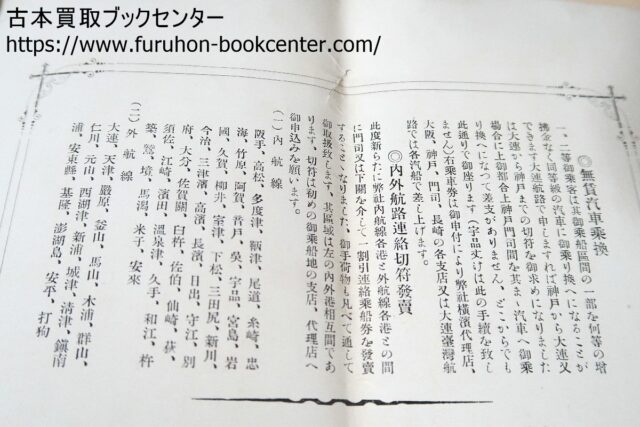 古本買取ブックセンター
https://www.furuhon-bookcenter.com/
◎無賃汽車乘換
一、二等御乘客は其御乘船區間の一部を何等の增
拂金なく同等級の汽車に御乘り換へになることが
できます大連航路で申しますれば神戸から大連又
は大連から神戸までの切符を御求めになりました
場合に上御都合上神戸門司間を其まゝ汽車へ御乘
り換へになつて差支ありません、どこからでも
此通りで御座ります(宇品丈けは此の手續を致し
ません)右乘車券は御申付により弊社橫濱代理店、
大阪、神戸、門司、長崎の各支店又は大連臺灣航
路では各汽船で差し上げます。
◎內外航路連絡切符發賣
此度新らたに弊社內航線各港と外航線各港との間
に門司又は下關を介して一割引連絡乘船券を發賣
することになりました、御手荷物も凡べて通して
御取扱致します、其區域は左の內外港相互間であ
ります、切符は初めの御乘船地の支店、代理店へ
御申込みを願います。
(一)內航線
阪手、高松、多度津、鞆津、尾道、糸崎、忠
海、竹原、阿賀、音戸、吳、宇品、宮島、岩
國、久賀、柳井、室津、下松、三田尻、新川、
今治、三津濱、高濱、長濱、日出、守江、別
府、大分、佐賀關、臼杵、佐伯、仙崎、萩、
須佐、江崎、濱田、溫泉津、久手、和江、杵
築、鷺、境、馬潟、米子、安來
(二)外航線
大連、天津、嚴原、釜山、馬山、木浦、群山、
仁川、元山、西湖津、新浦、城津、淸津、鎭南
浦、安東縣、基隆、澎湖島、安平、打狗